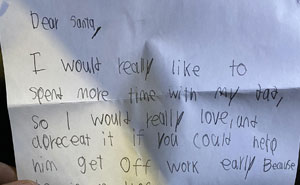 Dear Santa,
I would really like to
spend more time with my dad,
so I would really love, and
apreceat it if you could help
him get off work early Because